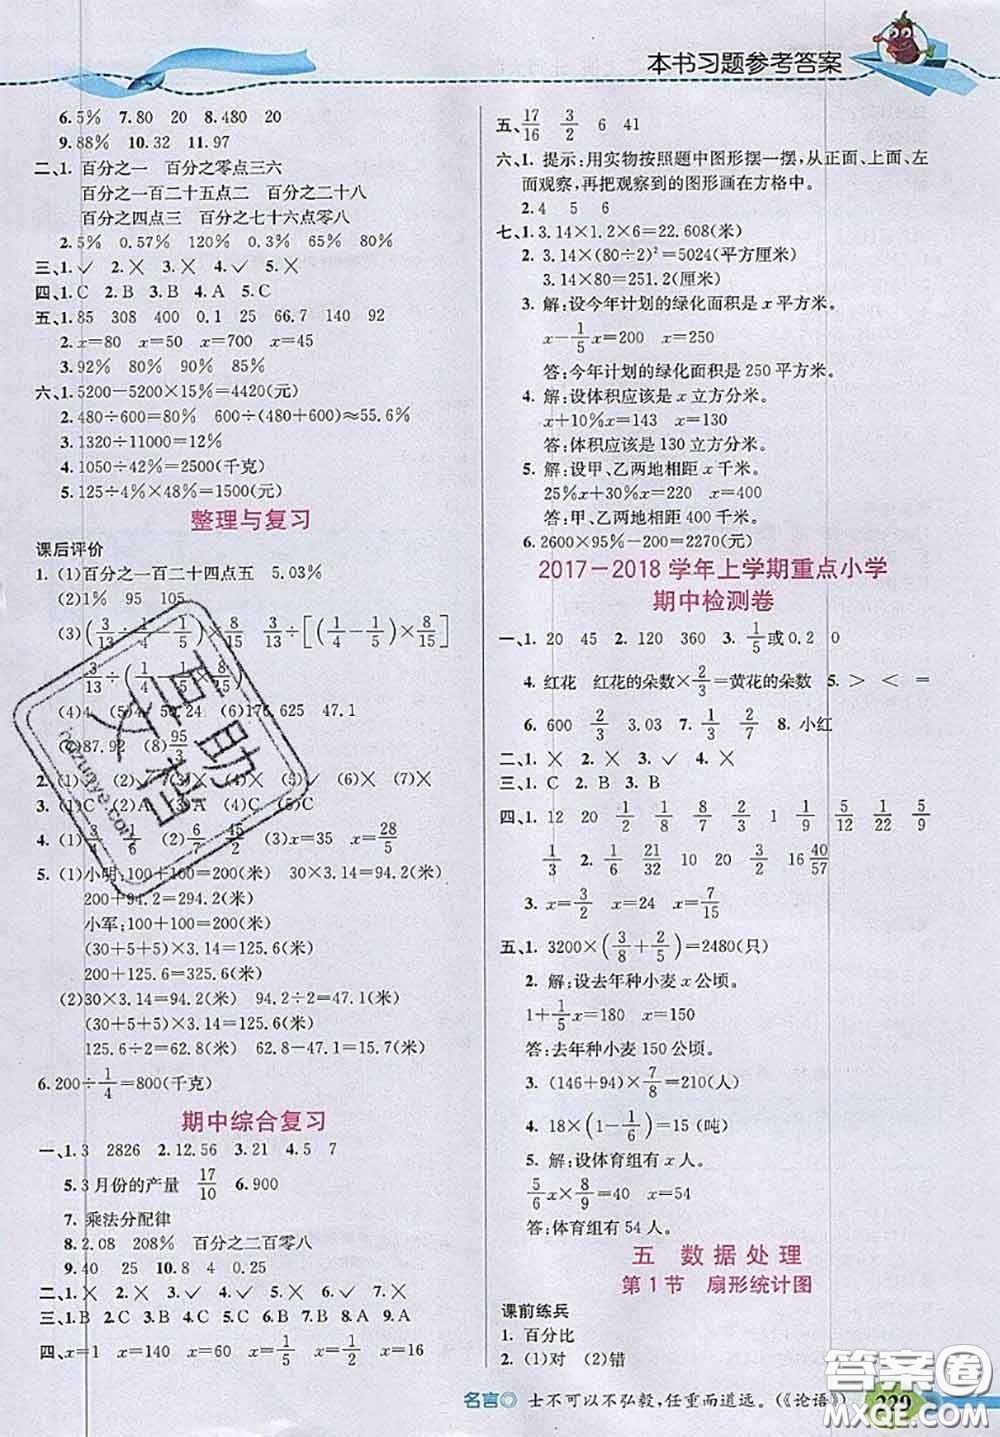 本书习题参考答案
6.5%  7.80  20  8.480  20
9.88%  10.32  11.97
二、1. 百分之一  百分之零点三六
百分之一百二十五点二  百分之二十八
百分之四点三  百分之七十六点零八
2.5%  0.57%  120%  0.3%  65%  80%
三、1.✓  2.×  3.×  4.✓  5.×
四、1.C  2.B  3.B  4.A  5.C
五、1.85  308  400  0.1  25  66.7  140  92
2.x=80  x=50  x=700  x=45
3.92%  80%  90%  80%
六、1.5200-5200×15%=4420(元)
2.480÷600=80%  600÷(480+600)≈55.6%
3.1320÷11000=12%
4.1050÷42%=2500(千克)
5.125÷4%×48%=1500(元)
整理与复习
课后评价
1. (1)百分之一百二十四点五  5.03%
(2)1%  95  105
(3)(3/13÷1/4-1/5)×8/15  3/13÷[(1/4-1/5)×8/15]
3/13÷(1/4-1/5)×8/15
(4)4  (5)4.52  (6)176.625  47.1
(7)87.92  (8)95/3
2. (1)✓  (2)×  (3)✓  (4)×  (5)✓  (6)×  (7)×
3. (1)C  (2)A  (3)A  (4)C  (5)C
4. (1)3/4  1/6  (2)6/7  45/2  (3)x=35  x=28/5
5. (1)小明:100+100=200(米)  30×3.14=94.2(米)
200+94.2=294.2(米)
小军:100+100=200(米)
(30+5+5)×3.14=125.6(米)
200+125.6=325.6(米)
(2)30×3.14=94.2(米)  94.2÷2=47.1(米)
(30+5+5)×3.14=125.6(米)
125.6÷2=62.8(米)  62.8-47.1=15.7(米)
6.200÷1/4=800(千克)
期中综合复习
一、1.3  2826  2.12.56  3.21  4.5  7
5.3月份的产量  17/10  6.900
7. 乘法分配律
8.2.08  208%  百分之二百零八
9.40  25  10.8  4  0.25
二、1.×  2.×  3.✓  4.×  5.✓  6.✓  7.✓  8.×
三、1.B  2.A  3.C  4.C  5.B  6.C  7.B  8.B  9.B
四、x=1  x=140  x=60  x=1/2  x=1/5  x=16
五、17/16  3/2  6  41
六、1. 提示:用实物按照题中图形摆一摆,从正面、上面、左面观察,再把观察到的图形画在方格中。
2.4  5  6
七、1.3.14×1.2×6=22.608(米)
2. 3.14×(80÷2)²=5024(平方厘米)
3.14×80=251.2(厘米)
3. 解:设今年计划的绿化面积是x平方米。
x-1/5x=200  x=250
答:今年计划的绿化面积是250平方米。
4. 解:设体积应该是x立方分米。
x+10%x=143  x=130
答:体积应该是130立方分米。
5. 解:设甲、乙两地相距x千米。
25%x+30%x=220  x=400
答:甲、乙两地相距400千米。
6.2600×95%-200=2270(元)
2017-2018学年上学期重点小学
期中检测卷
一、1. 20  45  2. 120  360  3. 1/5或0.2  0
4. 红花  红花的朵数×2/3=黄花的朵数  5. >  <  =
6. 600  2/5  3.03  7. 1/3  2/7  8. 小红
二、1.×  2.×  3.✓  4.✓  5.×
三、1.C  2.B  3.B
四、1. 12  20  1/2  1/8  8/7  1  1/9  5/12  5/9
1/3  2. 1/6  21/32  10  20  16  40/57
3. x=3/2  x=24  x=7/15
五、1. 3200×(3/8+2/5)=2480(只)
2. 解:设去年种小麦x公顷。
1+1/5x=180  x=150
答:去年种小麦150公顷。
3. (146+94)×7/8=210(人)
4. 18×(1-1/6)=15(吨)
5. 解:设体育组有x人。
5/6x×8/9=40  x=54
答:体育组有54人。
五  数据处理
第1节  扇形统计图
课前练兵
1. 百分比
2. (1)对  (2)错
名言◎  士不可以不弘毅,任重而道远。(《论语》)
229
互助文档
答案圈
MXQE.COM